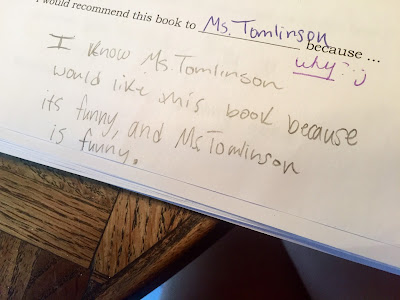 I would recommend this book to Ms. Tomlinson because ...
why? :)
I know Ms. Tomlinson
would like this book because
its funny, and Ms Tomlinson
is funny.